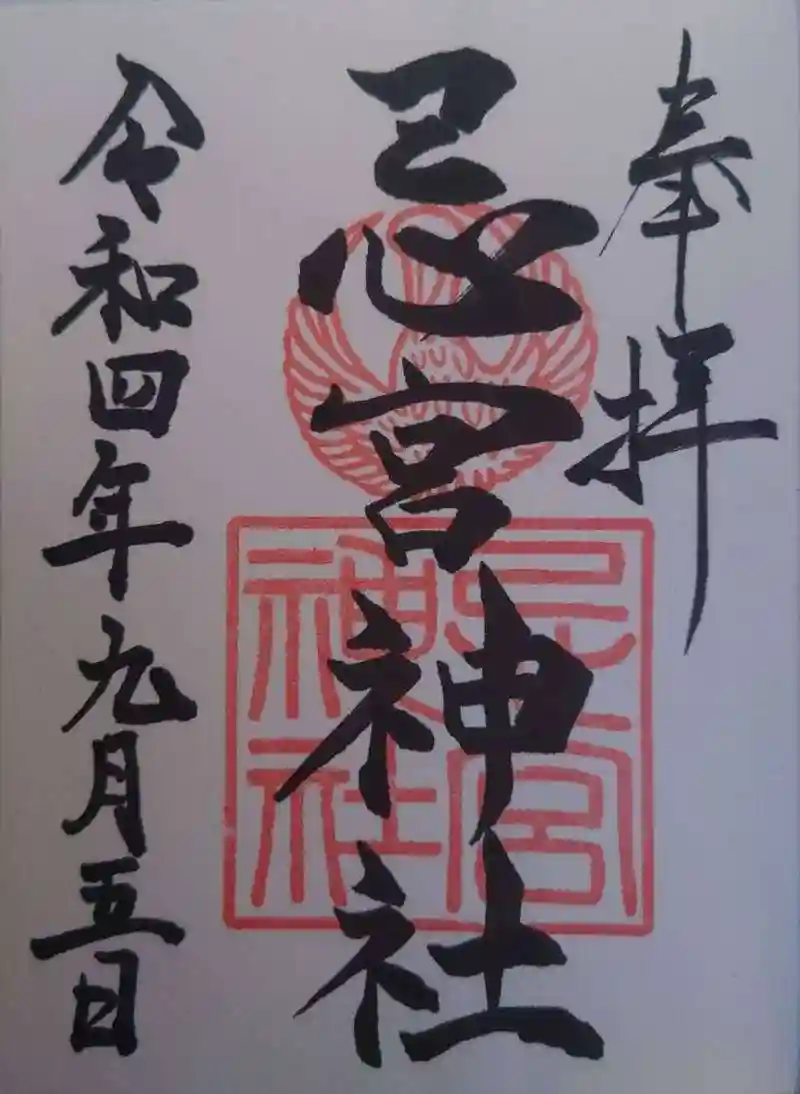 奉拝
忌宮神社
令和四年九月五日
忌宮神社